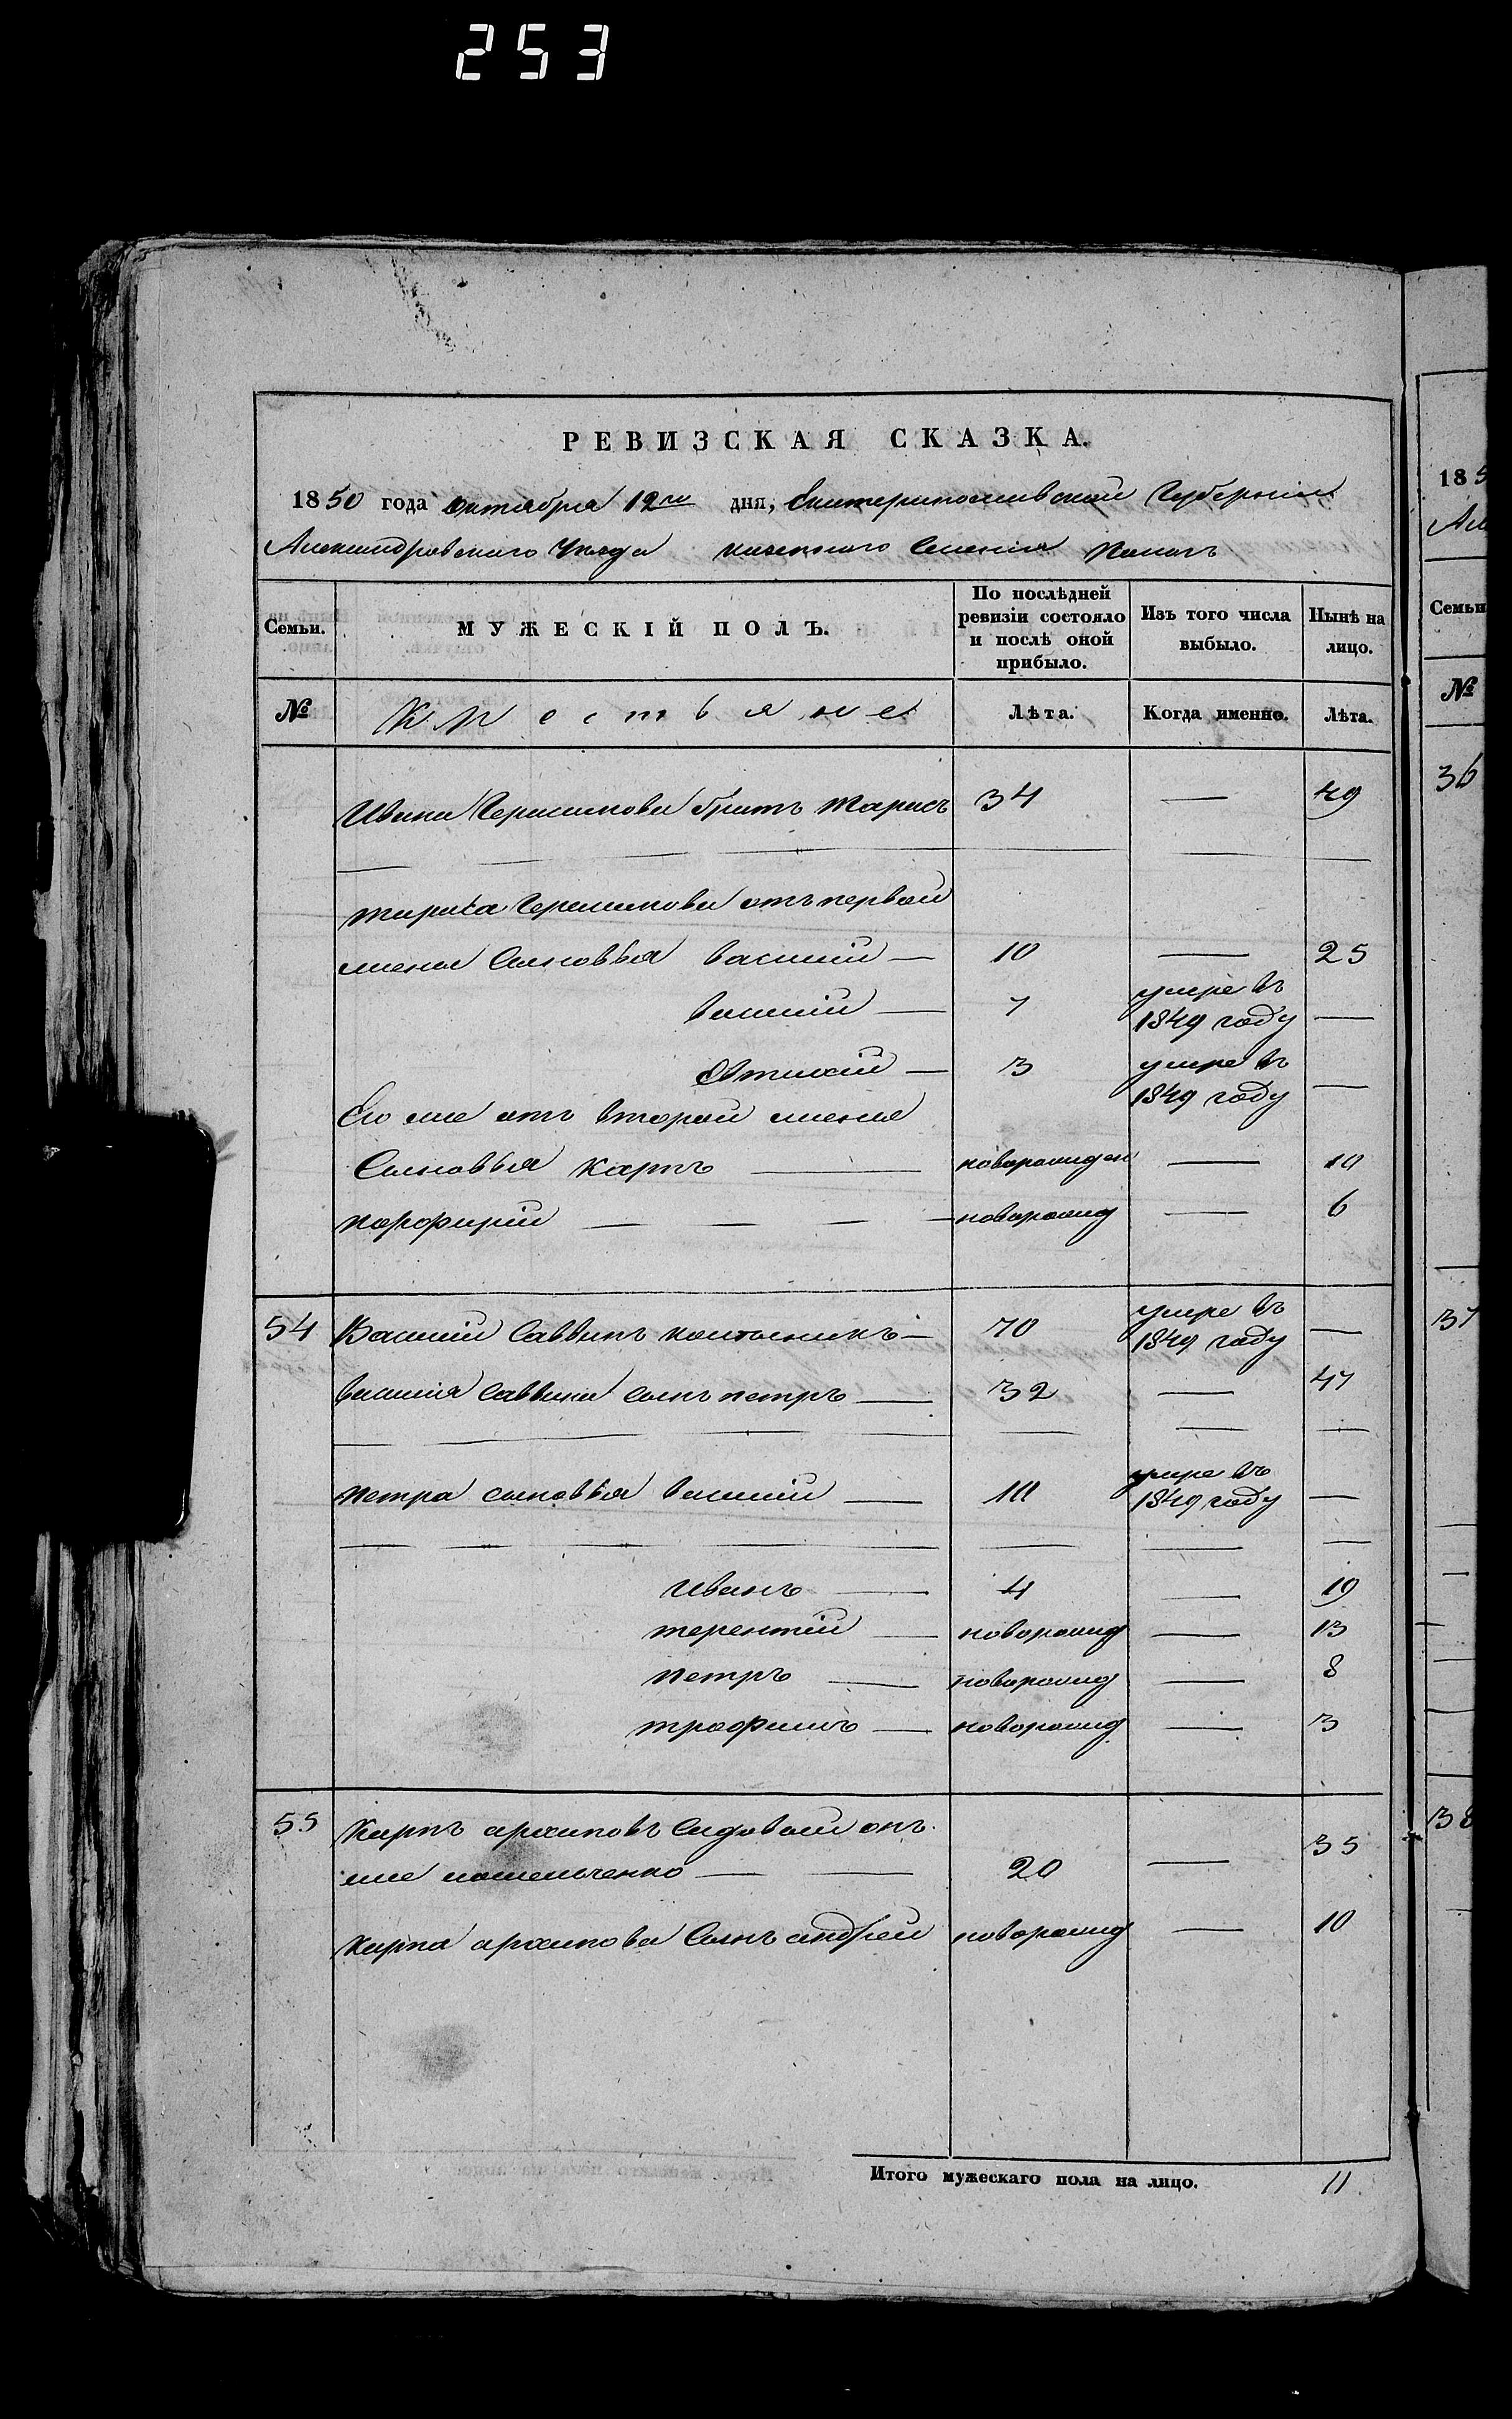 253
РЕВИЗСКАЯ СКАЗКА.
1850 года октября 12го дня, Екатеринославской Губернии
Александровского Уезда казенного Селения Пологъ
Семьи. МУЖЕСКІЙ ПОЛЪ. По послѣдней ревизіи состояло и послѣ оной прибыло. Изъ того числа выбыло. Нынѣ на лицо.
№ Крестьяне Лѣта. Когда именно. Лѣта.
Ивана Герасимова братъ Тарасъ 34 — 49
тараса Герасимова отъ первой
жены Сыновья василій — 10 — 25
василій — 7 умре въ 1849 году —
Евтихій — 3 умре въ 1849 году —
Его же отъ второй жены
Сыновья Карпъ — новорожден — 10
порфирій — новорожд — 6
54 Василій Саввинъ — 70 умре въ 1849 году —
василія Саввина сынъ петръ — 32 — 47
петра сыновья василій — 10 умре въ 1849 году —
Иванъ — 4 — 19
терентій — новорожд — 13
петръ — новорожд — 8
трофимъ — новорожд — 3
55 Карпъ архиповъ Садовой онъ
же 20 — 35
карпа архипова Сынъ андрей новорожд — 10
Итого мужескаго пола на лицо. 11
185
Ал
Семьи
№
36
37
38